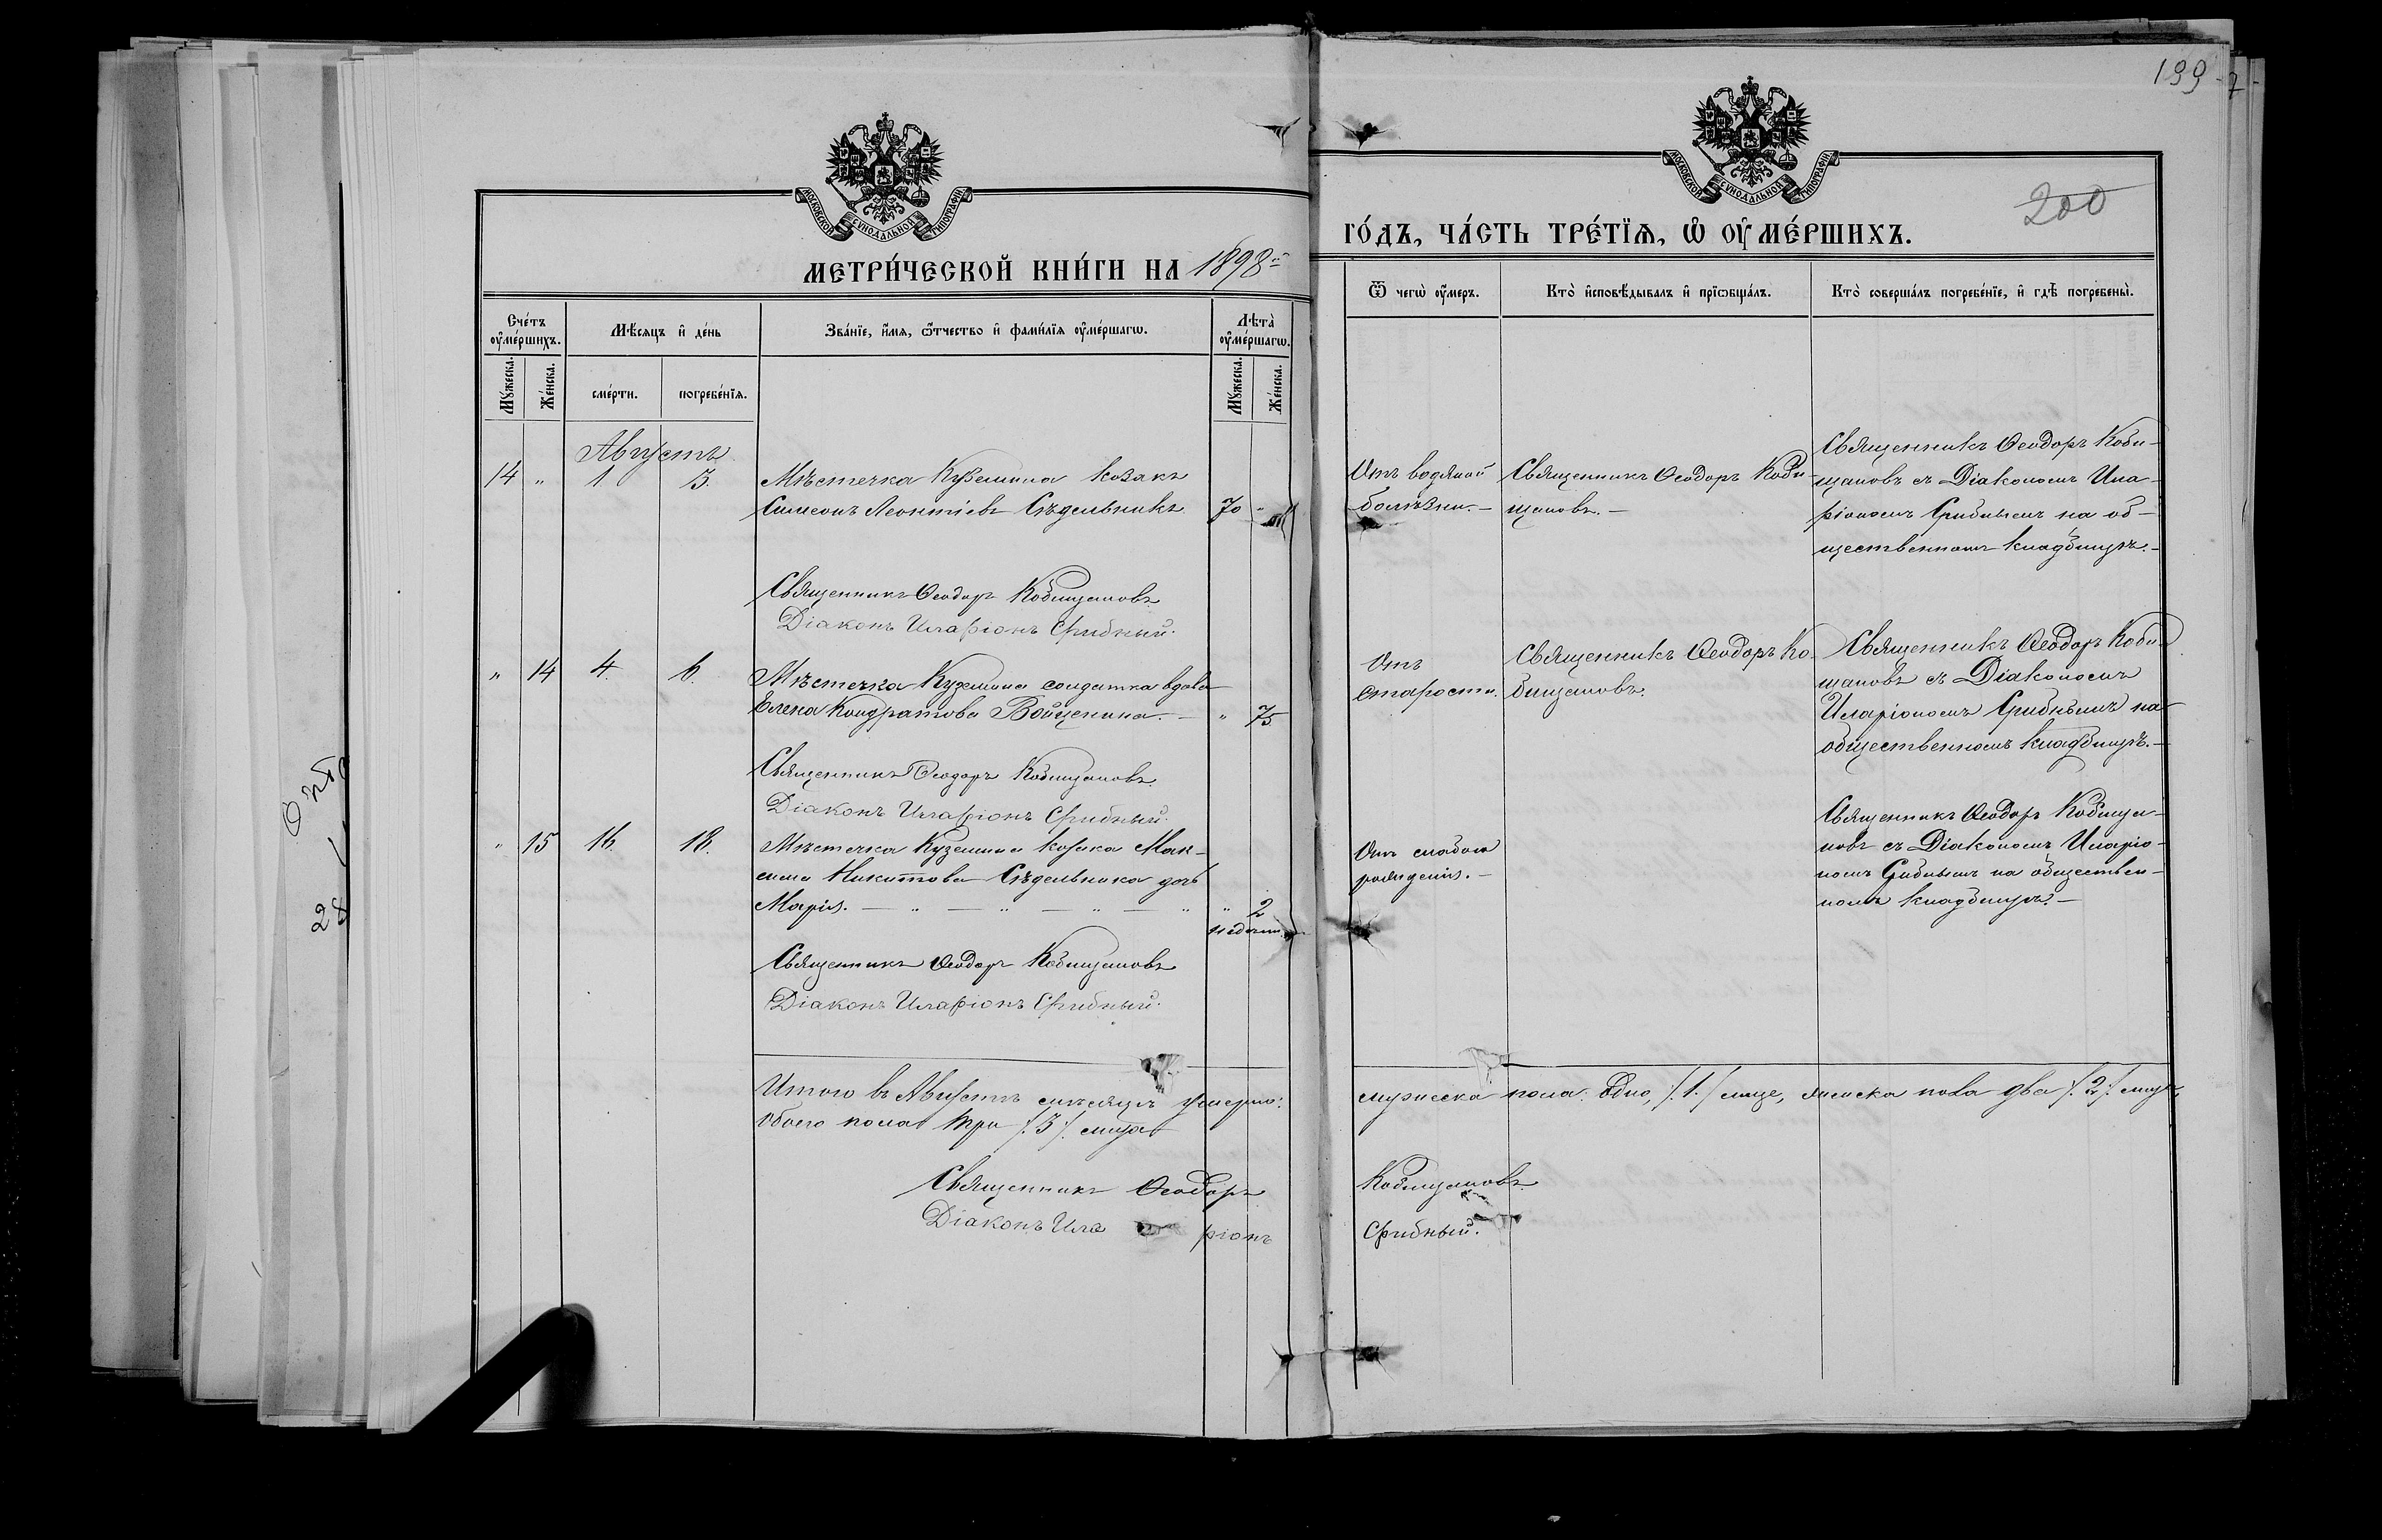 199
200
МОСКОВСКОЙ СѴНОДАЛЬНОЙ ТИПОГРАФІИ
МОСКОВСКОЙ СѴНОДАЛЬНОЙ ТИПОГРАФІИ
МЕТРИ́ЧЕСКОЙ КНИ́ГИ НА 1898й
ГО́ДЪ, ЧА́СТЬ ТРЕ́ТЇѦ, Ѡ҆ ОУ҆МЕ́РШИХЪ.
Сче́тъ оу҆ме́ршихъ.
Мꙋ́жеска.
Же́нска.
Мѣ́сяцъ и҆ де́нь
сме́рти.
погребе́нїѧ.
Зва́нїе, и҆́мѧ, ѻ҆́тчество и҆ фами́лїѧ оу҆ме́ршагѡ.
Лѣта̀ оу҆ме́ршагѡ.
Мꙋ́жеска.
Же́нска.
Ѿ чегѡ̀ оу҆́меръ.
Кто̀ и҆сповѣ́дывалъ и҆ прїѡбща́лъ.
Кто̀ соверша́лъ погребе́нїе, и҆ гдѣ̀ погребены̀.
Августъ
14 " 1. 3. Мѣстечка Куземина козакъ
Симеонъ Леонтіевъ Сѣдельникъ 70 "
Отъ водяной
болѣзни.—
Священникъ Ѳеодоръ Коби-
щановъ.—
Священникъ Ѳеодоръ Коби-
щановъ съ Діакономъ Ила-
ріономъ Срибнымъ на об-
щественномъ кладбищѣ.—
Священникъ Ѳеодоръ Кобищановъ
Діаконъ Иларіонъ Срибный.
" 14 4. 6. Мѣстечка Куземина солдатка вдова
Елена Кондратова Войценина.— " 75
Отъ
старости.
Священникъ Ѳеодоръ Ко-
бищановъ.
Священникъ Ѳеодоръ Коби-
щановъ съ Діакономъ
Иларіономъ Срибнымъ на
общественномъ кладбищѣ.—
Священникъ Ѳеодоръ Кобищановъ
Діаконъ Иларіонъ Срибный.
" 15 16. 18. Мѣстечка Куземина козака Мак-
сима Никитова Сѣдельника дочь
Марія. — " — " — " — " " 2
недѣли.
Отъ слабого
рожденія.—
Священникъ Ѳеодоръ Кобища-
новъ съ Діакономъ Иларіо-
номъ Срибнымъ на обществен-
номъ кладбищѣ.—
Священникъ Ѳеодоръ Кобищановъ
Діаконъ Иларіонъ Срибный.
Итого въ Августѣ мѣсяцѣ умерло: мужеска пола: одно, /.1./ лице, женска пола два /.2./ лица,
Обоего пола три /.3./ лица
Священникъ Ѳеодоръ Кобищановъ
Діаконъ Иларіонъ Срибный.